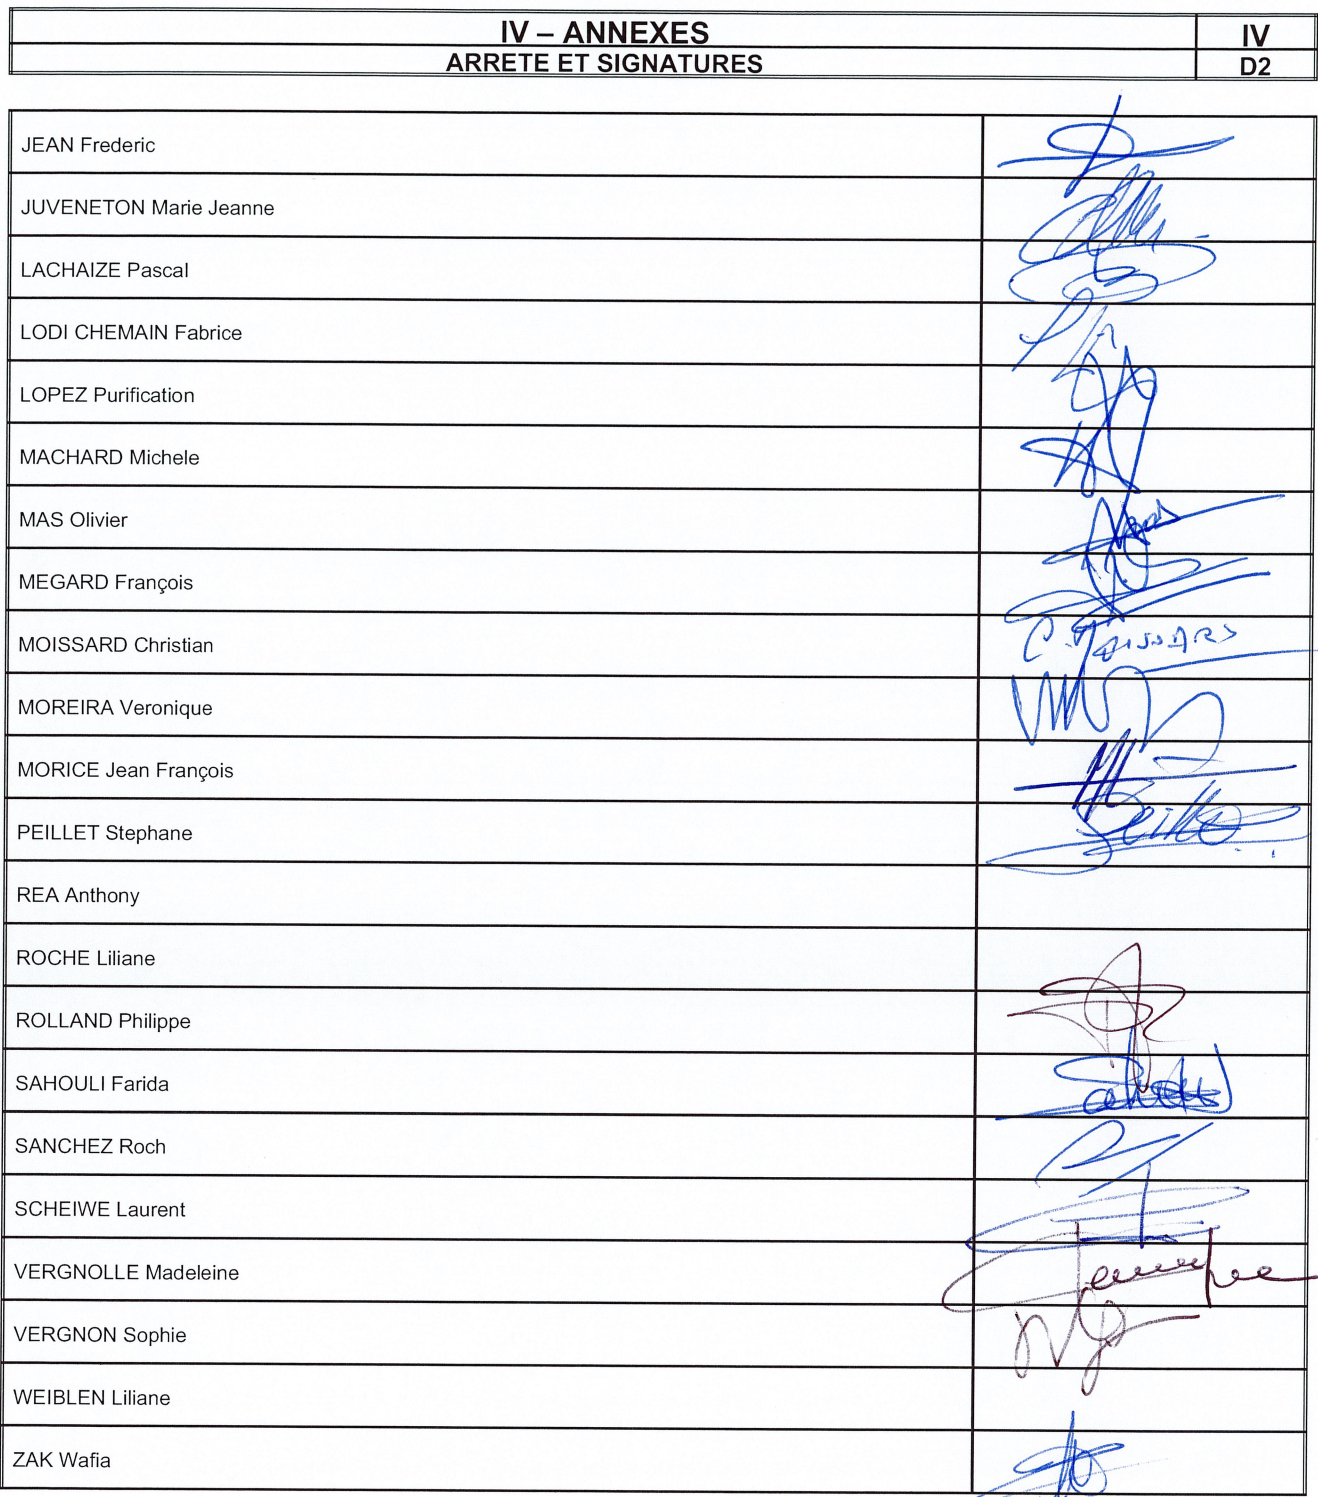 IV – ANNEXES
IV
ARRETE ET SIGNATURES
D2
JEAN Frederic
JUVENETON Marie Jeanne
LACHAIZE Pascal
LODI CHEMAIN Fabrice
LOPEZ Purification
MACHARD Michele
MAS Olivier
MEGARD François
MOISSARD Christian
C. MOISSARD
MOREIRA Veronique
MORICE Jean François
PEILLET Stephane
Peillet
REA Anthony
ROCHE Liliane
ROLLAND Philippe
SAHOULI Farida
SANCHEZ Roch
SCHEIWE Laurent
VERGNOLLE Madeleine
VERGNON Sophie
WEIBLEN Liliane
ZAK Wafia